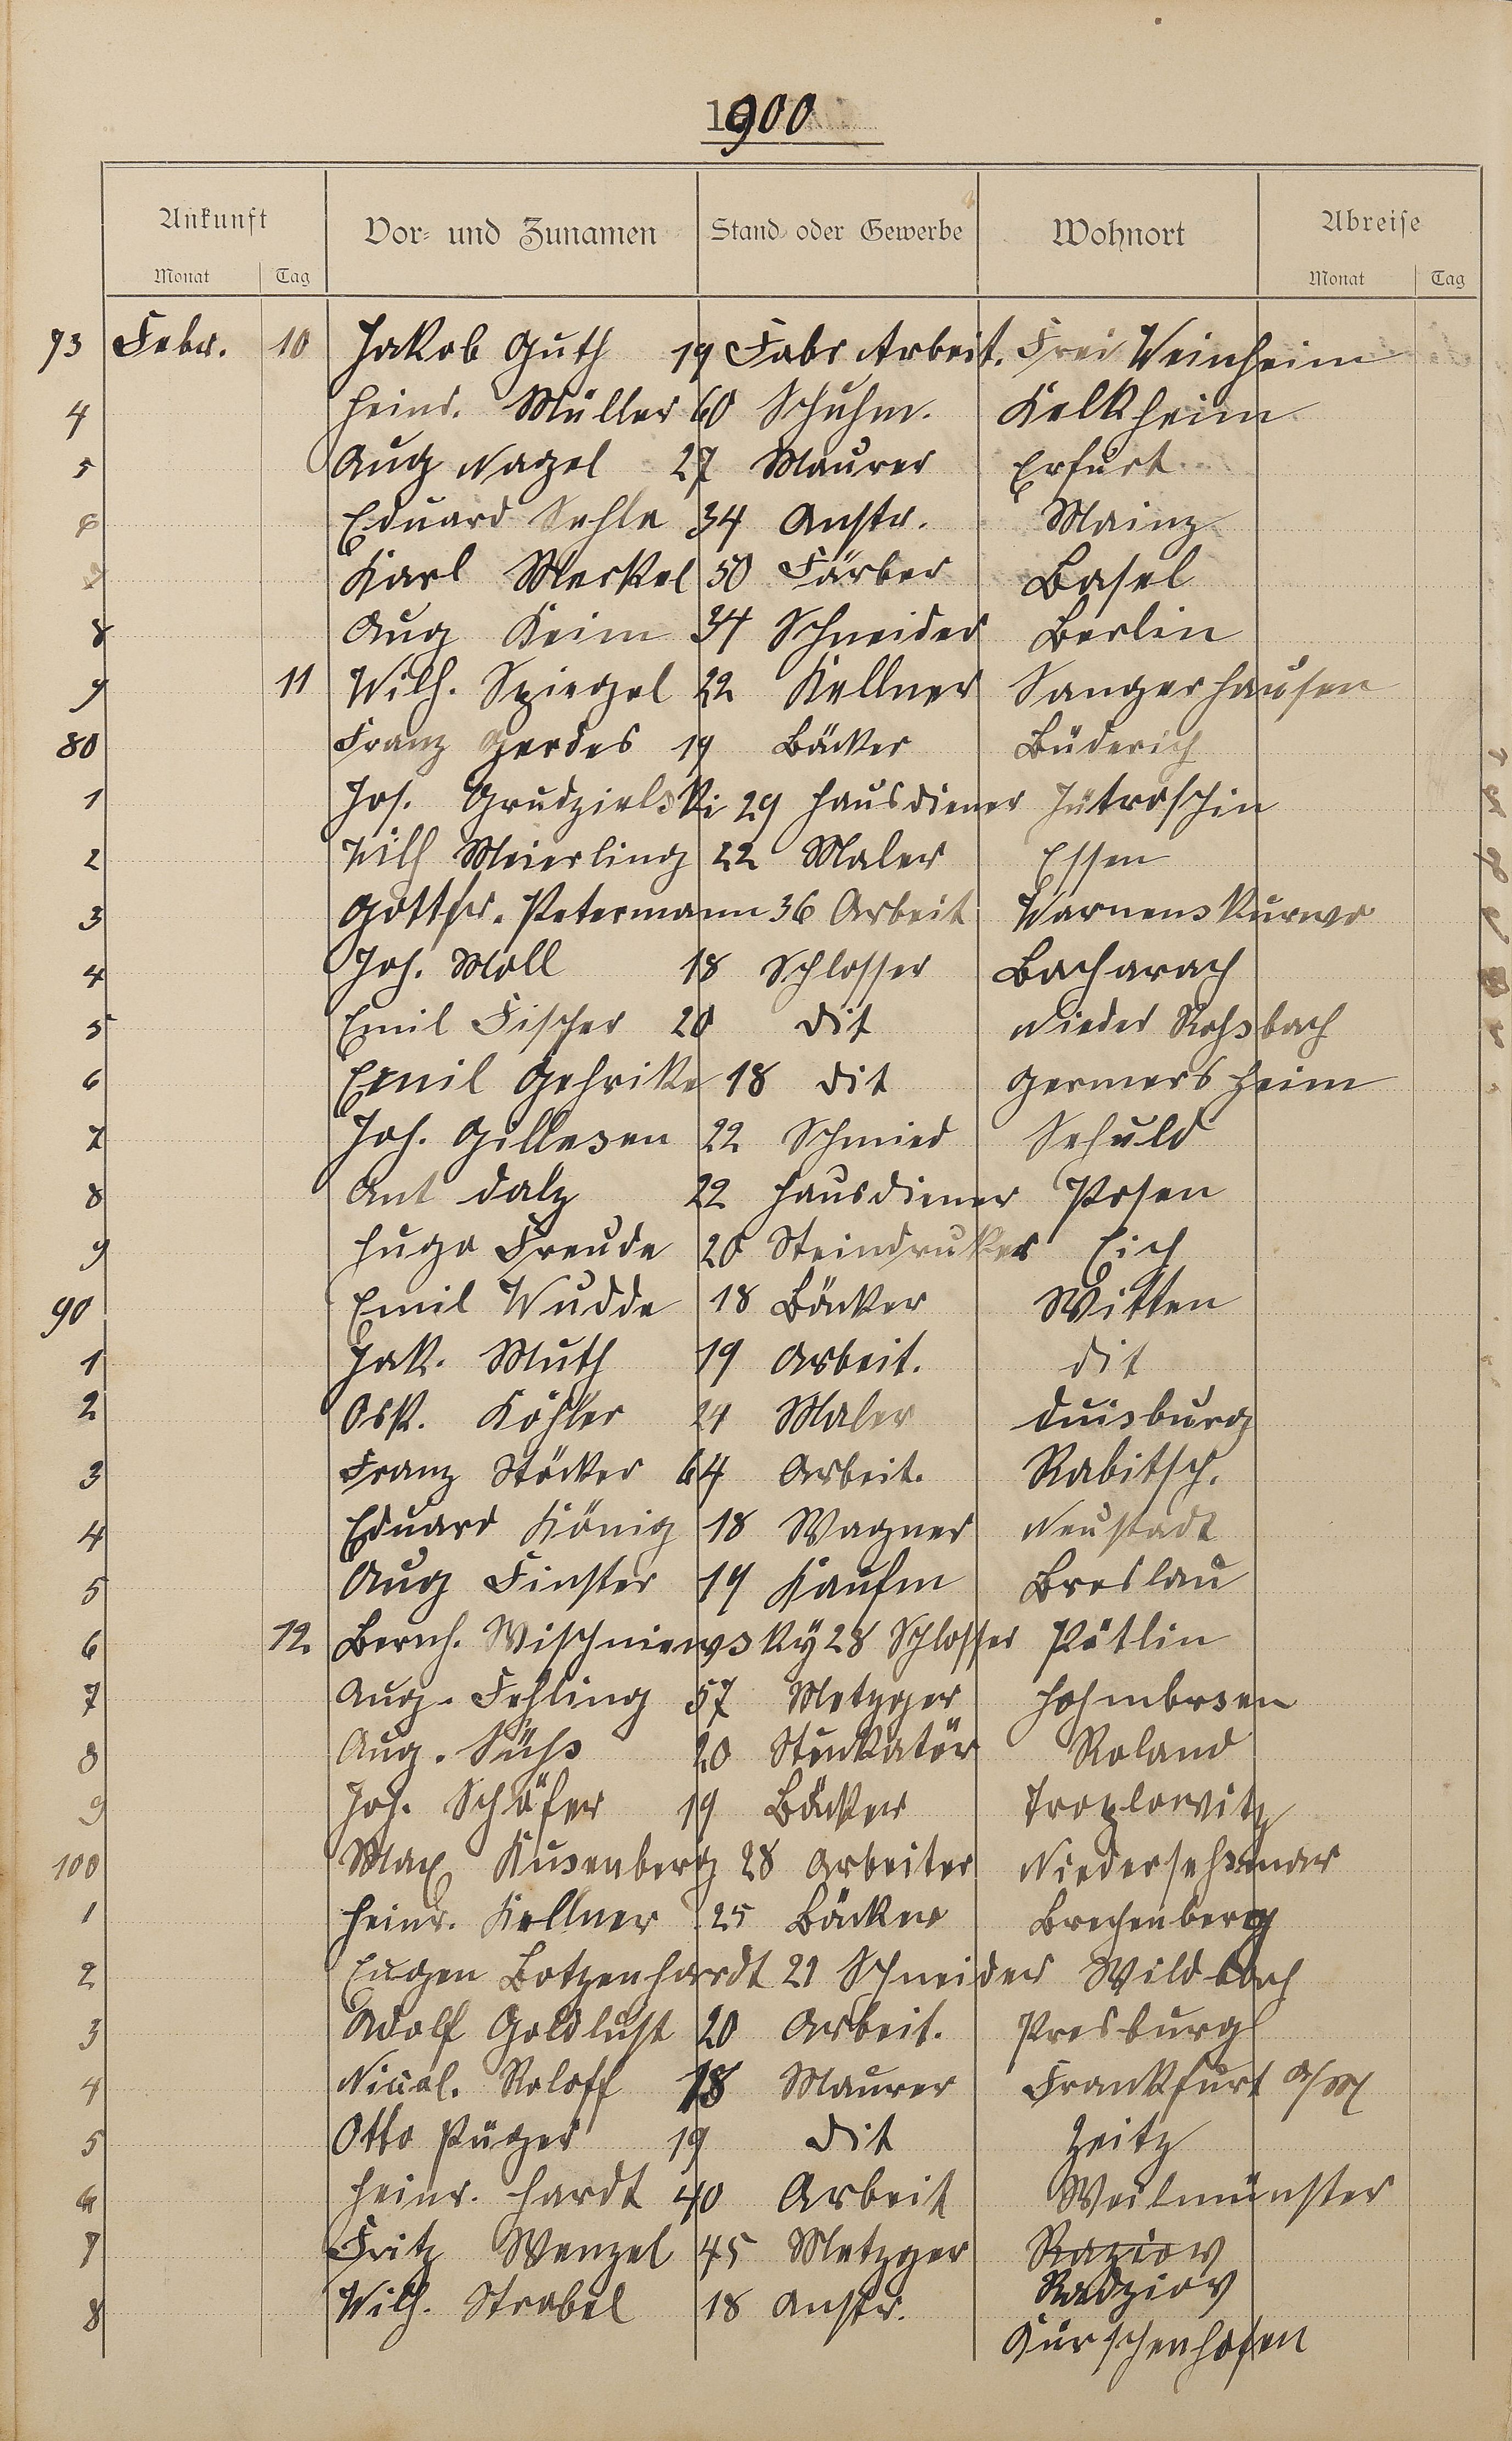 1900
Ankunft Vor- und Zunamen Stand oder Gewerbe Wohnort Abreise
Monat Tag Monat Tag
73 Febr. 10 Jakob Guth 19 Fabr Arbeit. Frei Weinheim
4 Heinr. Müller 60 Schuhm. Kelkheim
5 Aug Nagel 27 Maurer Erfurt
6 Eduard Sehle 34 Anstr. Mainz
7 Karl Merkel 50 Färber Basel
8 Aug Keim 34 Schneider Berlin
9 11 Wilh. Spiegel 22 Kellner Sangerhausen
80 Franz Gerdes 19 Bäcker Büderich
1 Jos. Grudzielski 29 Hausdiener Jutroschin
2 Wilh Meierling 22 Maler Essen
3 Gottfr. Petermann 36 Arbeit
4 Joh. Moll 18 Schlosser Bacharach
5 Emil Fischer 20 dit Nieder Rossbach
6 Emil Gehrike 18 dit Germersheim
7 Joh. Gillesen 22 Schmied Schuld
8 Ant Dalz 22 Hausdiener Posen
9 Hugo Freude 20 Steindruker Eich
90 Emil Wudde 18 Bäcker Witten
1 Jak. Muth 19 Arbeit. dit
2 Osk. Köhler 24 Maler Duisburg
3 Franz Stöcker 64 Arbeit. Rabitsch.
4 Eduard König 18 Wagner Neustadt
5 Aug Finster 19 Kaufm Breslau
6 12. Bernh. Wischniewsky 28 Schlosser Pätlin
7 Aug. Fehling 57 Metzger
8 Aug. Süss 20 Stuckatör Roland
9 Joh. Schäfer 19 Bäcker Troplowitz
100 Max Kusenberg 28 Arbeiter
1 Heinr. Kellner 25 Bäcker Brechenberg
2 Eugen Botzenhardt 21 Schneider Wildbach
3 Adolf Goldlust 20 Arbeit. Presburg
4 Nicol. Roloff 18 Maurer Frankfurt a/M
5 Otto Püger 19 dit Zeitz
6 Heinr. Hardt 40 Arbeit Weilmünster
7 Fritz Wenzel 45 Metzger Raziow
Radziow
8 Wilh. Strobel 18 Anstr.
Kürschenhofen